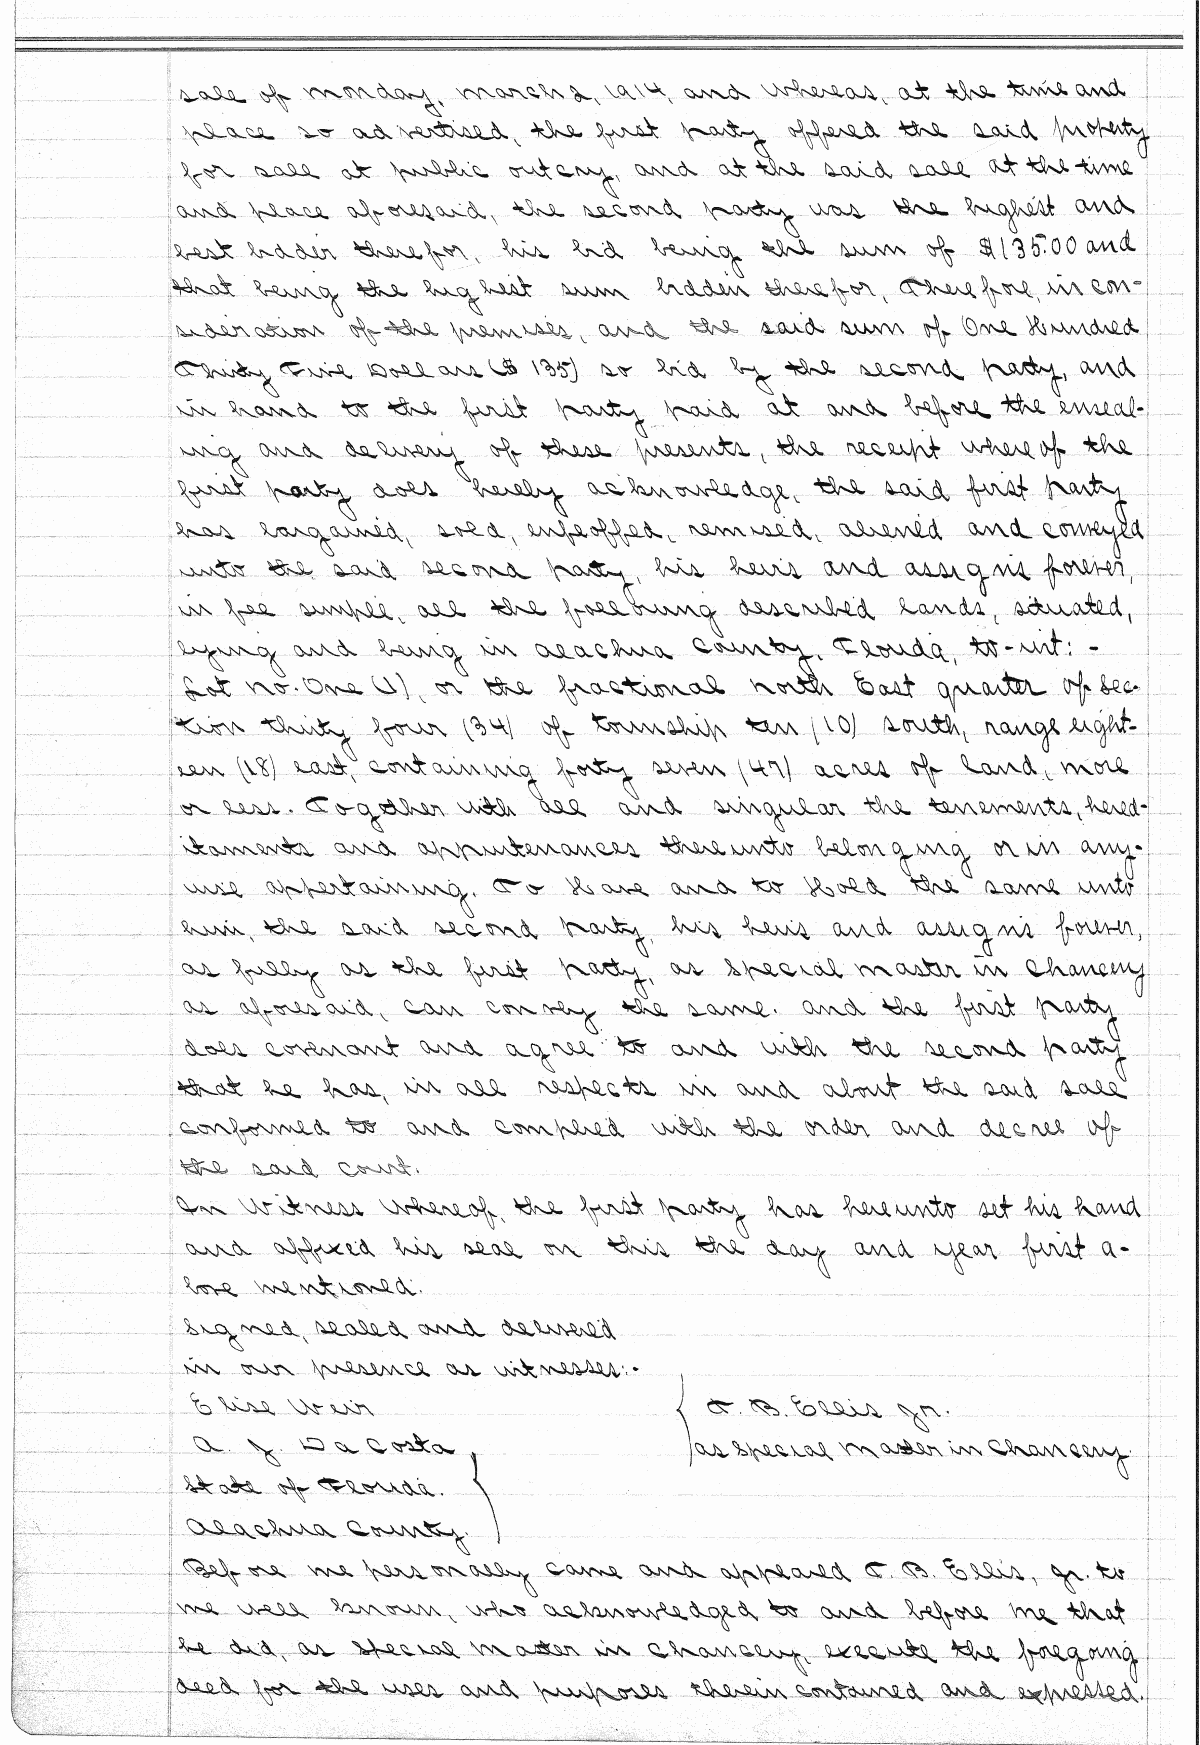 sale of Monday, March 2, 1914, and whereas, at the time and
place so advertised, the first party offered the said property
for sale at public outcry, and at the said sale at the time
and place aforesaid, the second party was the highest and
best bidder therefor, his bid being the sum of $135.00 and
that being the highest sum bidden therefor, Therefore, in con-
sideration of the premises, and the said sum of One Hundred
Thirty Five Dollars ($135) so bid by the second party, and
in hand to the first party paid at and before the enseal-
ing and delivery of these presents, the receipt whereof the
first party does hereby acknowledge, the said first party
has bargained, sold, enfeoffed, remised, aliened and conveyed
unto the said second party, his heirs and assigns forever,
in fee simple, all the following described lands, situated,
lying and being in Alachua County, Florida, to-wit: -
Lot No. One (1), or the fractional North East quarter of Sec-
tion thirty four (34) of township ten (10) south, range eight-
een (18) east, containing forty seven (47) acres of land, more
or less. Together with all and singular the tenements, hered-
itaments and appurtenances thereunto belonging or in any-
wise appertaining. To Have and to Hold the same unto
him, the said second party, his heirs and assigns forever,
as fully as the first party, as Special Master in Chancery
as aforesaid, can convey the same. And the first party
does covenant and agree to and with the second party
that he has, in all respects in and about the said sale
conformed to and complied with the order and decree of
the said court.
In Witness Whereof, the first party has hereunto set his hand
and affixed his seal on this the day and year first a-
bove mentioned.
Signed, sealed and delivered
in our presence as witnesses:-
Elise Weir T. B. Ellis Jr.
A. J. Da Costa as Special Master in Chancery.
State of Florida.
Alachua County.
Before me personally came and appeared T. B. Ellis, Jr. to
me well known, who acknowledged to and before me that
he did, as Special Master in Chancery, execute the foregoing
deed for the uses and purposes therein contained and expressed.